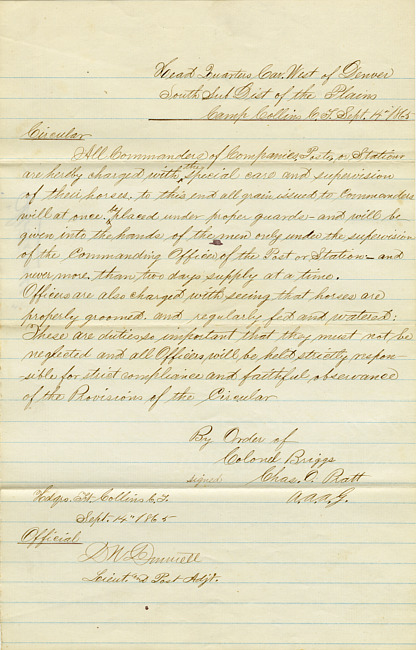 Head Quarters Cav. West of Denver
South Sub Dist of the Plains
Camp Collins C.T. Sept. 14th 1865
Circular
All Commanders of Companies, Posts, or Stations
are herby charged with the special care and supervision
of their horses. to this end all grain issued to Commanders
will at once placed under proper guards - and will be
given into the hands of the men only under the supervision
of the Commanding Officer of the Post or Station - and
never more than two days supply at a time.
Officers are also charged with seeing that horses are
properly groomed and regularly fed and watered;
These are duties so important that they must not be
neglected and all Officers will be held strictly respon-
sible for strict compliance and faithful observance
of the Provisions of the Circular
By Order of
Colonel Briggs
signed Chas. O. Ratt
A.A.A.G.
Hdqrs. Ft. Collins C.T.
Sept. 14th 1865
Official
Lieut. & Post Adjt.